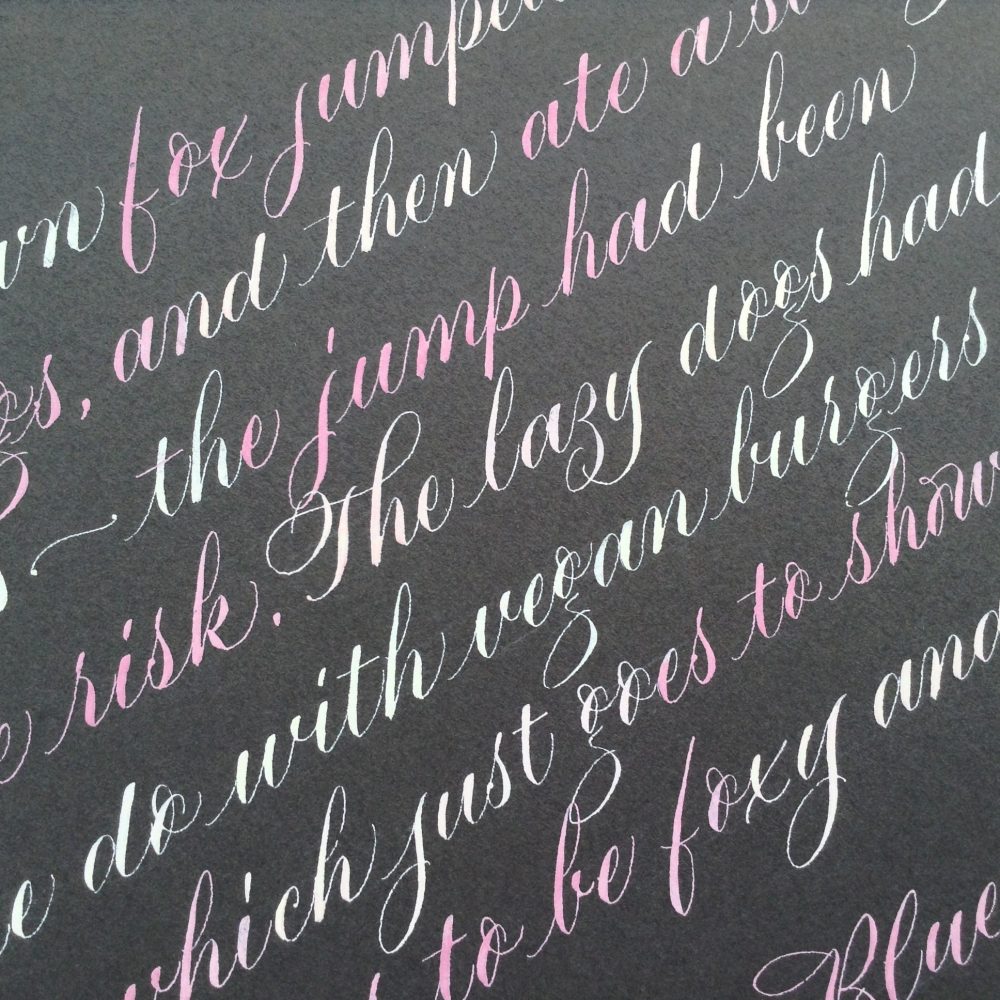 fox jumped
, and then ate a
— the jump had been
risk. The lazy dogs had
do with vegan burgers
which just goes to show
to be foxy and
Blue